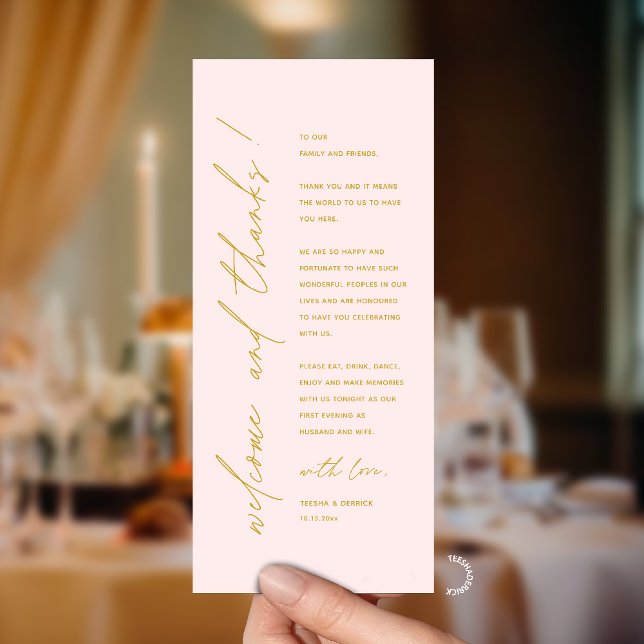 welcome and thanks!
TO OUR
FAMILY AND FRIENDS,
THANK YOU AND IT MEANS
THE WORLD TO US TO HAVE
YOU HERE.
WE ARE SO HAPPY AND
FORTUNATE TO HAVE SUCH
WONDERFUL PEOPLES IN OUR
LIVES AND ARE HONOURED
TO HAVE YOU CELEBRATING
WITH US.
PLEASE EAT, DRINK, DANCE,
ENJOY AND MAKE MEMORIES
WITH US TONIGHT AS OUR
FIRST EVENING AS
HUSBAND AND WIFE.
with love,
TEESHA & DERRICK
10.15.20xx
TEESHADERRICK